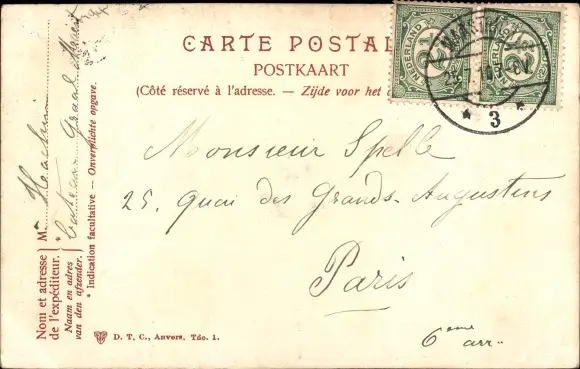 CARTE POSTALE
POSTKAART
(Côté réservé à l'adresse. — Zijde voor het
NEDERLAND
NEDERLAND
3
Monsieur Spelle
25, Quai des Grands-Augustins
Paris
6eme arr..
Nom et adresse de l'expéditeur.
Naam en adres van den afzender.
Mr
* Indication facultative — Onverplichte opgave.
D. T. C., Anvers, Tdc. 1.